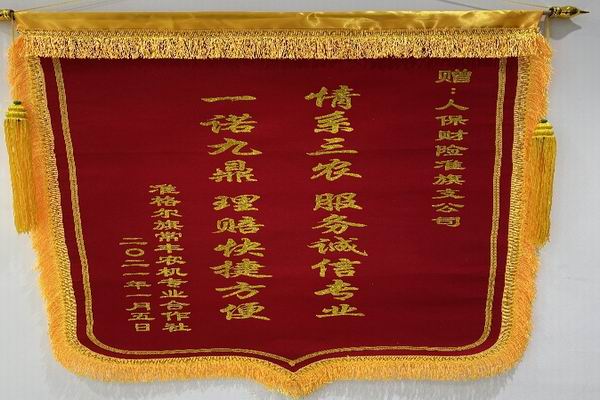 赠：人保财险准旗支公司
情系三农 服务诚信专业
一诺九鼎 理赔快捷方便
准格尔旗常丰农机专业合作社
二〇二一年一月五日